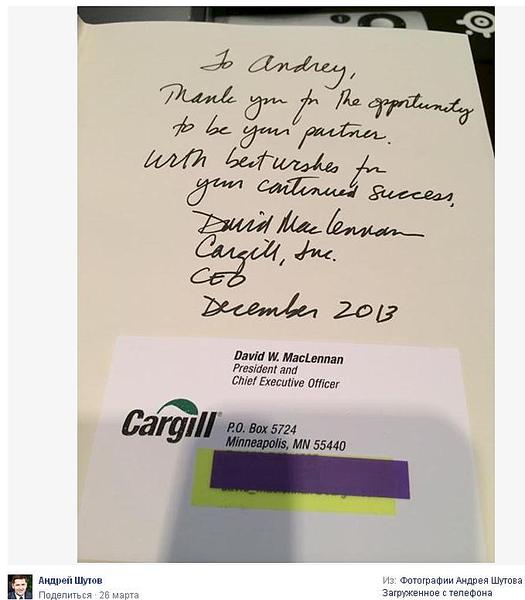 To Andrey,
Thank you for the opportunity
to be your partner.
With best wishes for
your continued success,
David MacLennan
Cargill, Inc.
CEO
December 2013
David W. MacLennan
President and
Chief Executive Officer
Cargill
P.O. Box 5724
Minneapolis, MN 55440
Андрей Шутов
Поделиться · 26 марта
Из: Фотографии Андрея Шутова
Загруженное с телефона